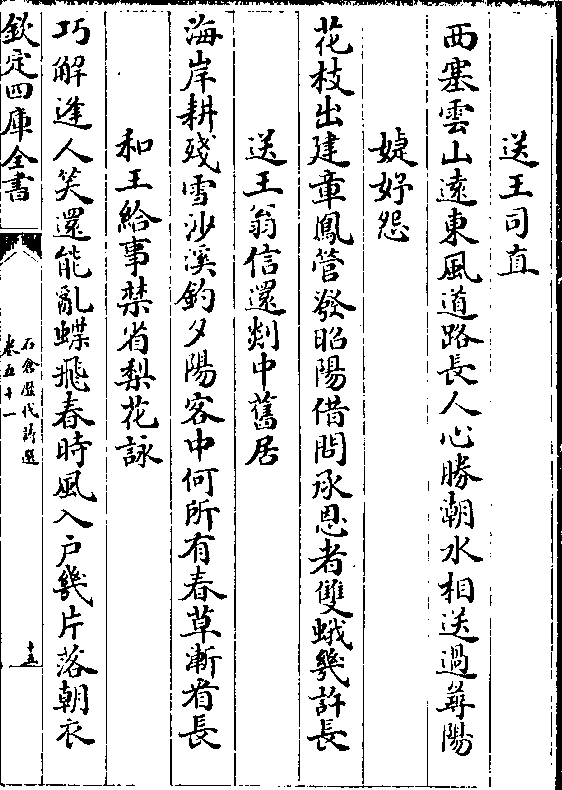 送王司直
西塞雲山遠東風道路長人心勝潮水相送過潯陽
婕妤怨
花枝出建章鳳管發昭陽借問承恩者雙蛾幾許長
送王翁信還剡中舊居
海岸耕殘雪沙溪釣夕陽客中何所有春草漸看長
和王給事禁省梨花詠
巧解逢人笑還能亂蝶飛春時風入户幾片落朝衣
欽定四庫全書
石倉歷代詩選
卷五十一
十五